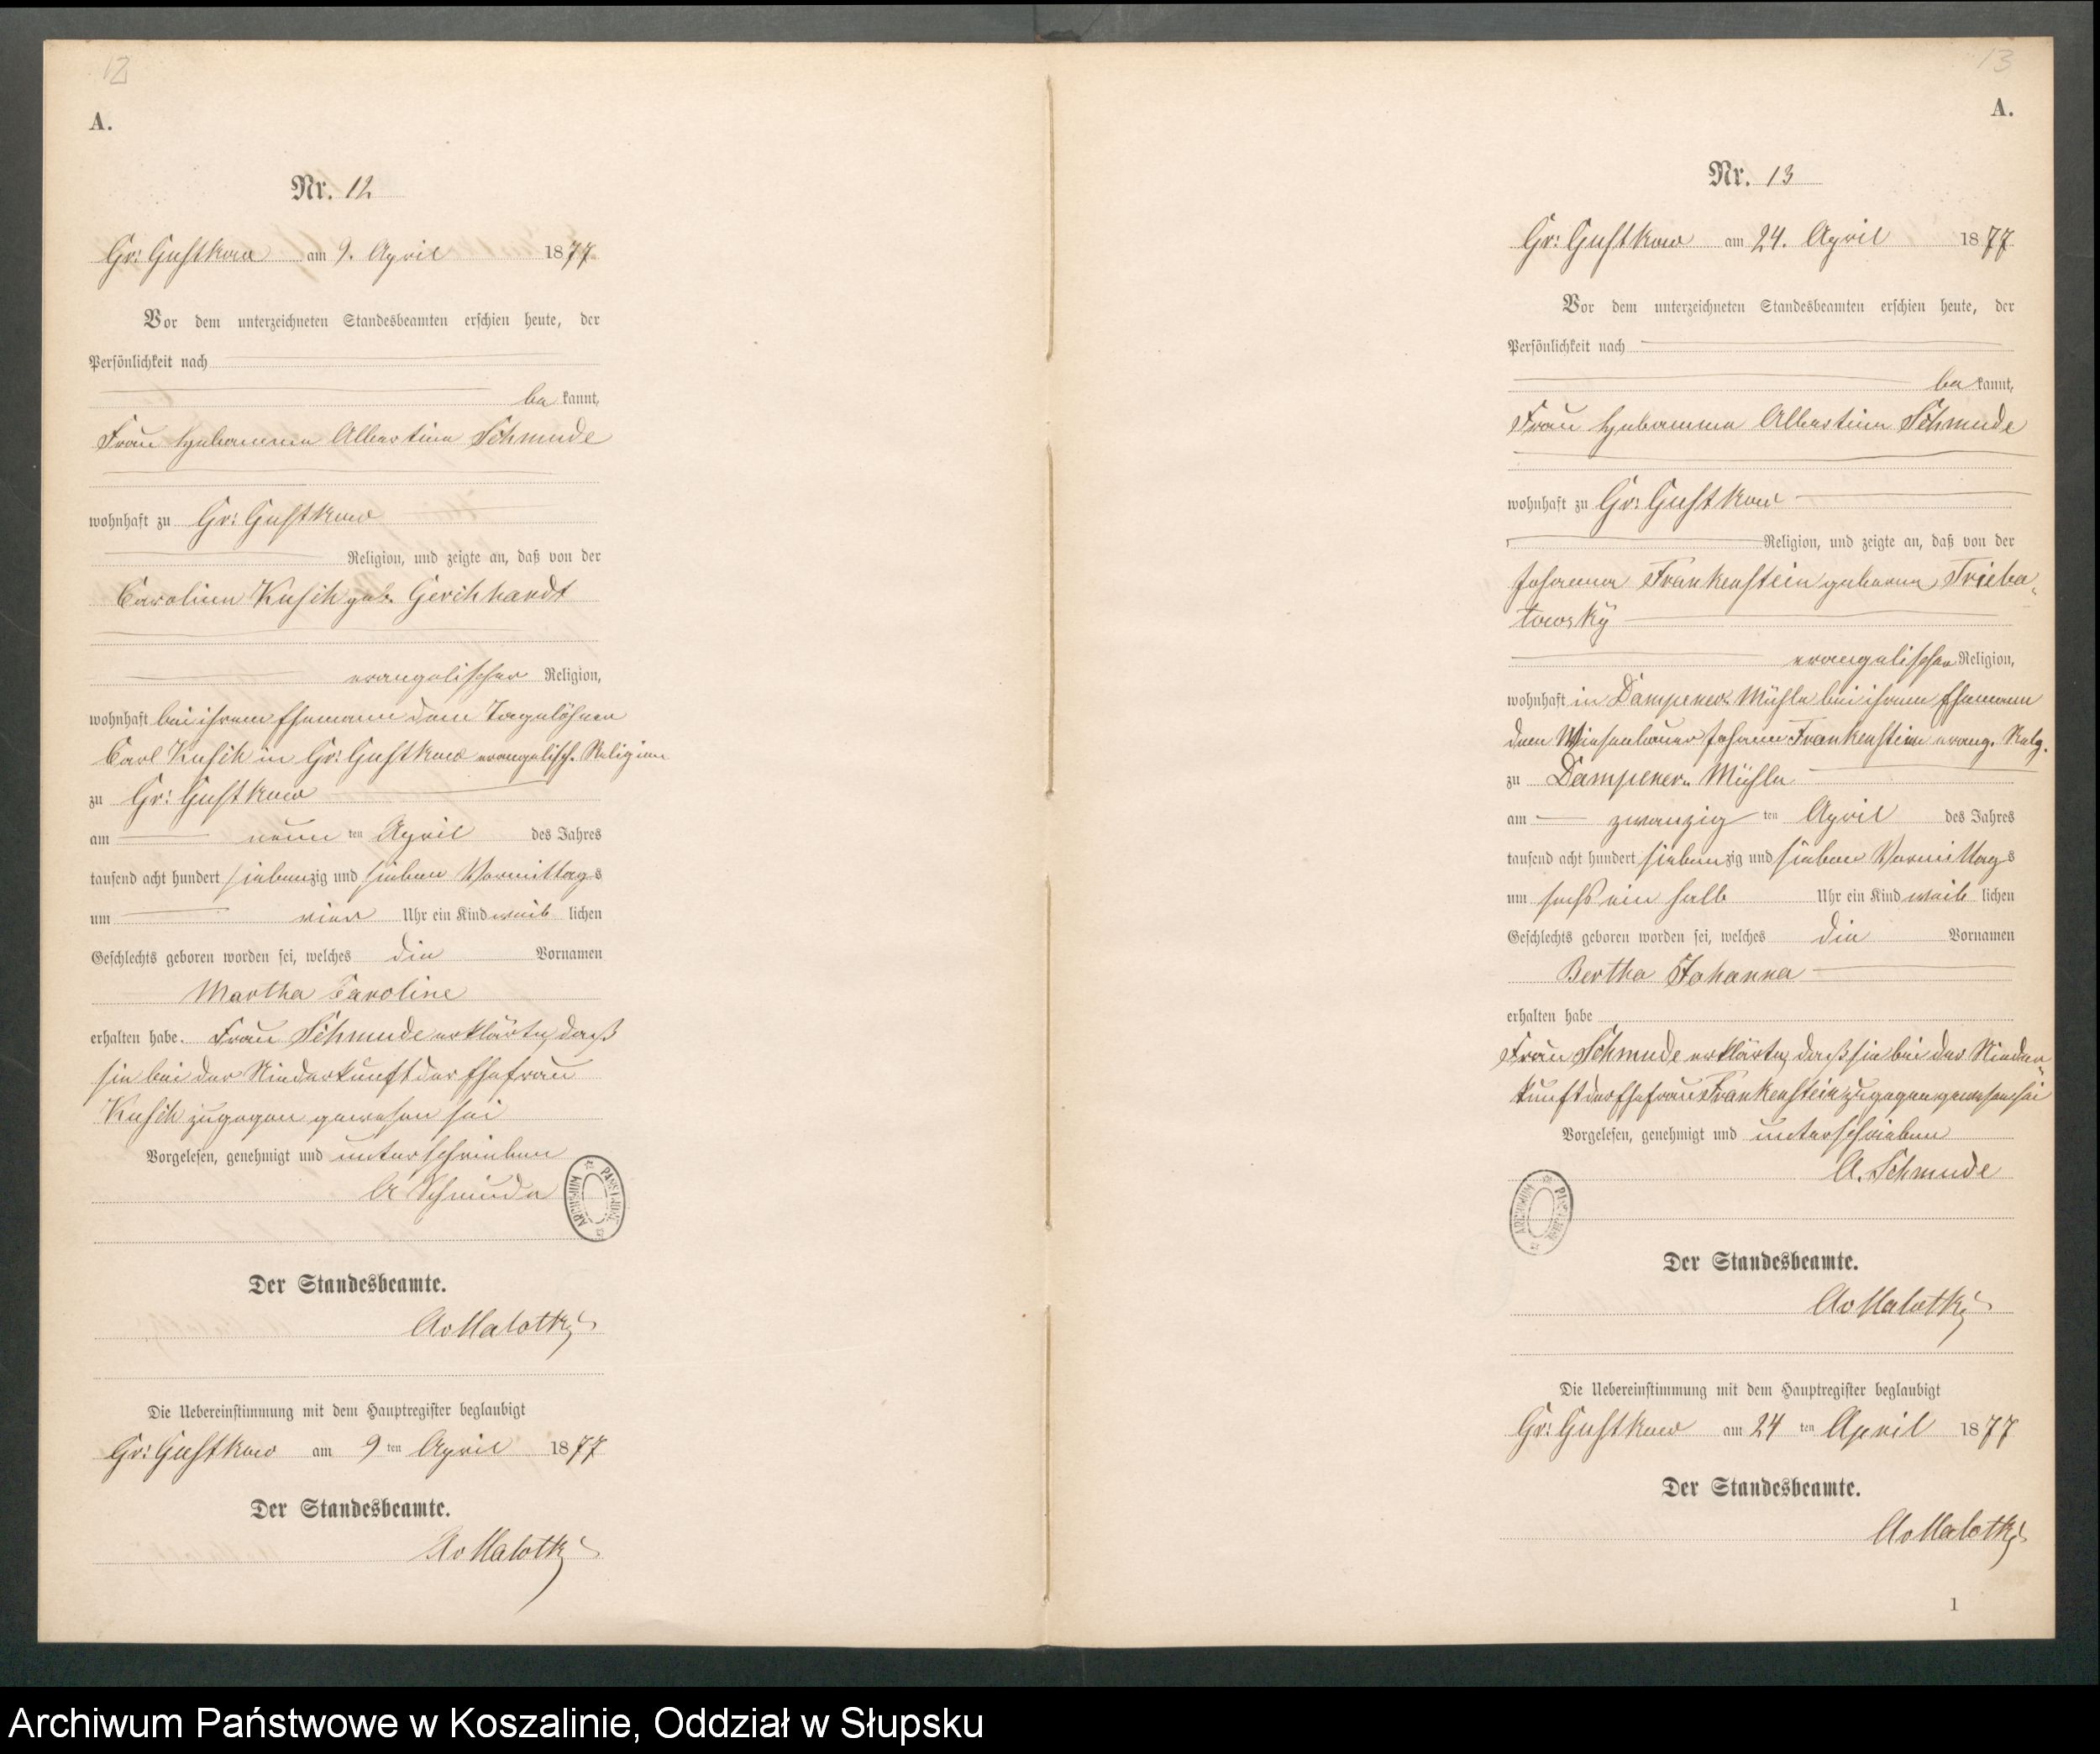 12
A.
Nr. 12
Gr: Gustkow am 9. April 1877
Vor dem unterzeichneten Standesbeamten erschien heute, der
Persönlichkeit nach
be kannt,
Frau Hebamme Albertine Schmude
wohnhaft zu Gr: Gustkow
Religion, und zeigte an, daß von der
Caroline Kusch geb. Gerchhardt
evangelischer Religion,
wohnhaft bei ihrem Ehemann dem Tagelöhner
Carl Kusch in Gr: Gustkow evangelisch. Religion
zu Gr: Gustkow
am neun ten April des Jahres
tausend acht hundert siebenzig und sieben Vormittags
um vier Uhr ein Kind weib lichen
Geschlechts geboren worden sei, welches die Vornamen
Martha Caroline
erhalten habe. Frau Schmude erklärte, daß
sie bei der Niederkunft der Ehefrau
Kusch zugegen gewesen sei
Vorgelesen, genehmigt und unterschrieben
A Schmude
ARCHIWUM PAŃSTWOWE
Der Standesbeamte.
AvMalotki
Die Uebereinstimmung mit dem Hauptregister beglaubigt
Gr: Gustkow am 9 ten April 1877
Der Standesbeamte.
AvMalotki
13
A.
Nr. 13
Gr: Gustkow am 24. April 1877
Vor dem unterzeichneten Standesbeamten erschien heute, der
Persönlichkeit nach
be kannt,
Frau Hebamme Albertine Schmude
wohnhaft zu Gr: Gustkow
Religion, und zeigte an, daß von der
Johanna Frankenstein geborne Trieba-
towsky
evangelischer Religion,
wohnhaft in Dampener Mühle bei ihrem Ehemann
dem Wiesenbauer Johann Frankenstein evang. Relg.
zu Dampener Mühle
am zwanzig ten April des Jahres
tausend acht hundert siebenzig und sieben Vormittags
um sechs ein halb Uhr ein Kind weib lichen
Geschlechts geboren worden sei, welches die Vornamen
Bertha Johanna
erhalten habe
Frau Schmude erklärte, daß sie bei der Nieder-
kunft der Ehefrau Frankenstein zugegen gewesen sei
Vorgelesen, genehmigt und unterschrieben
A. Schmude
ARCHIWUM PAŃSTWOWE
Der Standesbeamte.
AvMalotki
Die Uebereinstimmung mit dem Hauptregister beglaubigt
Gr: Gustkow am 24 ten April 1877
Der Standesbeamte.
AvMalotki
1
Archiwum Państwowe w Koszalinie, Oddział w Słupsku